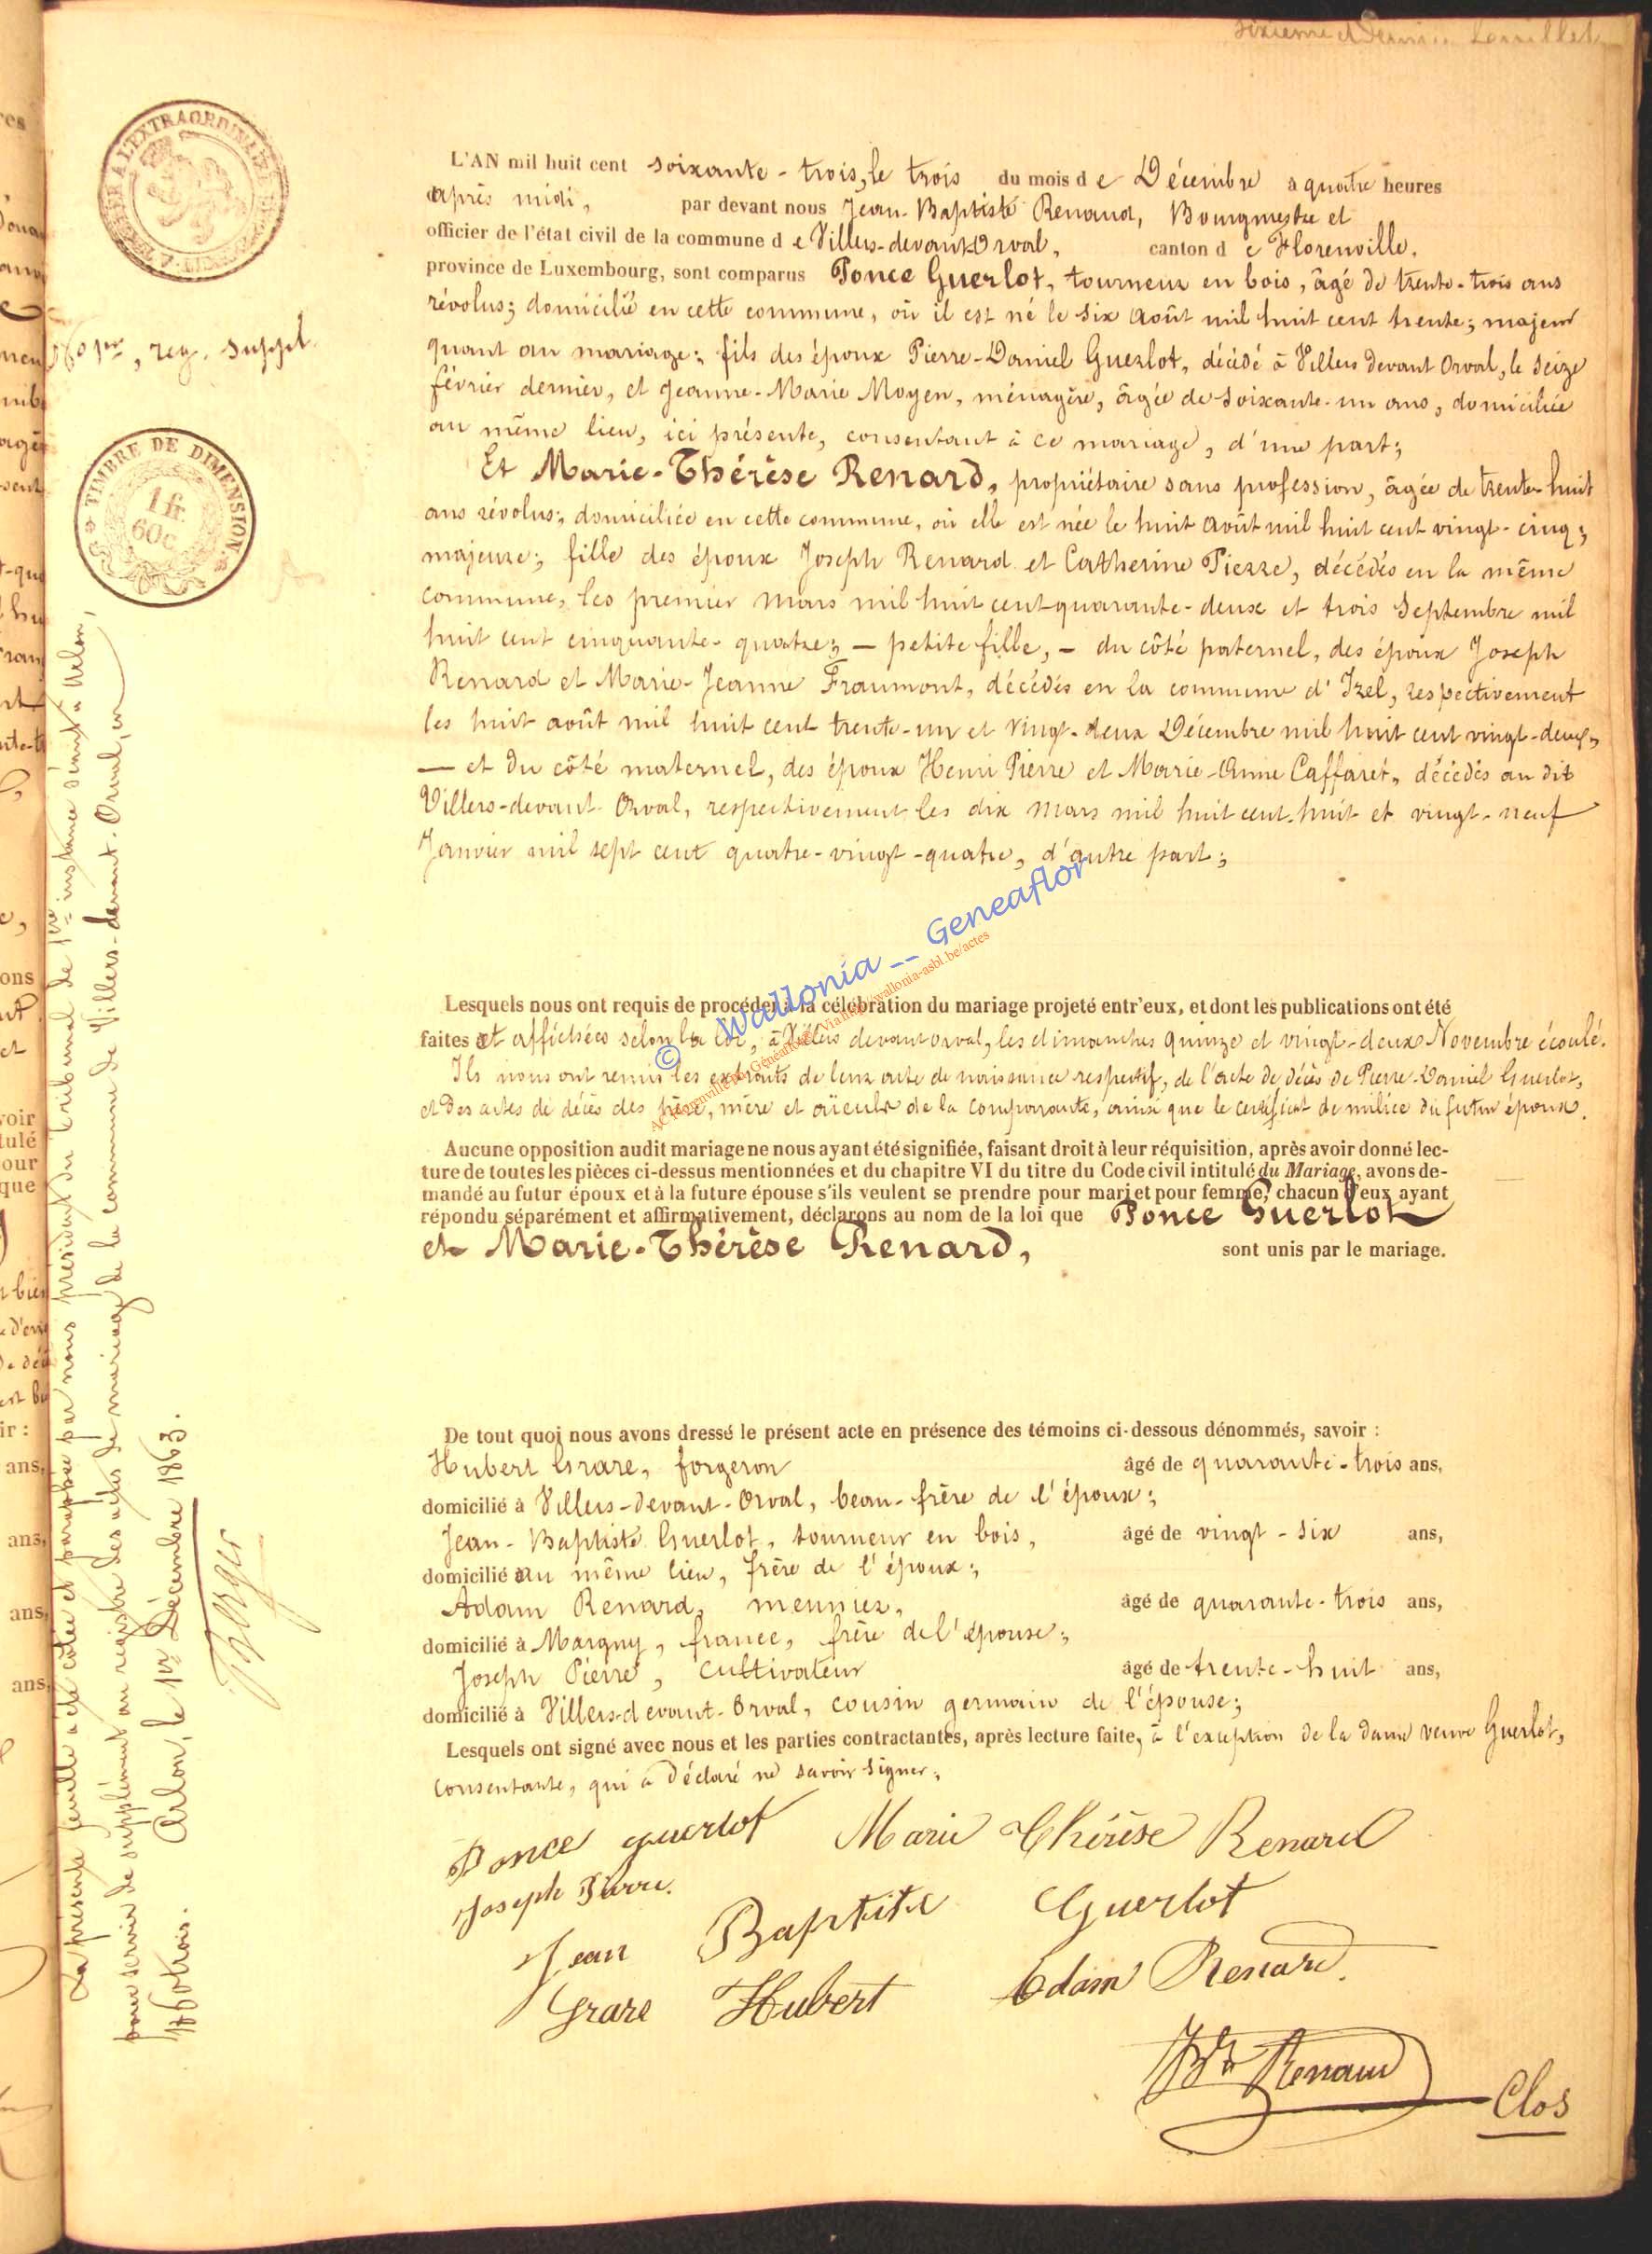 sixième et dernier feuillet
TIMBRE A L'EXTRAORDINAIRE
L'AN mil huit cent soixante-trois, le trois du mois de Décembre à quatre heures
après midi, par devant nous Jean-Baptiste Renaud, Bourgmestre et
officier de l'état civil de la commune de Villers-devant-Orval, canton de Florenville,
province de Luxembourg, sont comparus Ponce Guerlot, tourneur en bois, âgé de trente-trois ans
révolus; domicilié en cette commune, où il est né le six août mil huit cent trente; majeur
quant au mariage; fils des époux Pierre-Daniel Guerlot, décédé à Villers devant Orval, le seize
février dernier, et Jeanne-Marie Moyen, ménagère, âgée de soixante-un ans, domiciliée
au même lieu, ici présente, consentant à ce mariage, d'une part;
Et Marie-Thérèse Renard, propriétaire sans profession, âgée de trente-huit
ans révolus; domiciliée en cette commune, où elle est née le huit août mil huit cent vingt-cinq;
majeure; fille des époux Joseph Renard et Catherine Pierre, décédés en la même
commune, les premier mars mil huit cent quarante-deux et trois Septembre mil
huit cent cinquante-quatre; — petite fille, - du côté paternel, des époux Joseph
Renard et Marie-Jeanne Fraumont, décédés en la commune d'Izel, respectivement
les huit août mil huit cent trente-un et vingt-deux Décembre mil huit cent vingt-deux,
— et du côté maternel, des époux Henri Pierre et Marie-Anne Caffaret, décédés au dit
Villers-devant-Orval, respectivement les dix mars mil huit cent-huit et vingt-neuf
Janvier mil sept cent quatre-vingt-quatre, d'autre part;
Lesquels nous ont requis de procéder à la célébration du mariage projeté entr'eux, et dont les publications ont été
faites et affichées selon la loi, à Villers devant orval, les dimanches quinze et vingt-deux Novembre écoulé.
Ils nous ont remis les extraits de leur acte de naissance respectif, de l'acte de décès de Pierre-Daniel Guerlot,
et des actes de décès des père, mère et aïeuls de la comparante, ainsi que le certificat de milice du futur époux.
Aucune opposition audit mariage ne nous ayant été signifiée, faisant droit à leur réquisition, après avoir donné lec-
ture de toutes les pièces ci-dessus mentionnées et du chapitre VI du titre du Code civil intitulé du Mariage, avons de-
mandé au futur époux et à la future épouse s'ils veulent se prendre pour mari et pour femme, chacun d'eux ayant
répondu séparément et affirmativement, déclarons au nom de la loi que Ponce Guerlot
et Marie-Thérèse Renard, sont unis par le mariage.
De tout quoi nous avons dressé le présent acte en présence des témoins ci-dessous dénommés, savoir :
Hubert Grare, forgeron âgé de quarante-trois ans,
domicilié à Villers-devant-Orval, beau-frère de l'époux;
Jean-Baptiste Guerlot, tourneur en bois, âgé de vingt-six ans,
domicilié au même lieu, frère de l'époux;
Adam Renard, meunier, âgé de quarante-trois ans,
domicilié à Margny, france, frère de l'épouse;
Joseph Pierre, cultivateur âgé de trente-huit ans,
domicilié à Villers-devant-Orval, cousin germain de l'épouse;
Lesquels ont signé avec nous et les parties contractantes, après lecture faite, à l'exception de la dame veuve Guerlot,
consentante, qui a déclaré ne savoir signer.
Ponce guerlot Marie Thérèse Renard
Joseph Pierre.
Jean Baptiste Guerlot
Grare Hubert Adam Renard.
JBte Renaud
Clos
reg. suppl.
TIMBRE DE DIMENSION
1 fr.
60 c.
La présente feuille a été cotée et paraphée par nous président du tribunal de 1ère instance séant à Arlon,
pour servir de supplément au registre des actes de mariage de la commune de Villers-devant-Orval, en
1860trois. Arlon, le 1er Décembre 1863.
© Wallonia -- Geneaflor